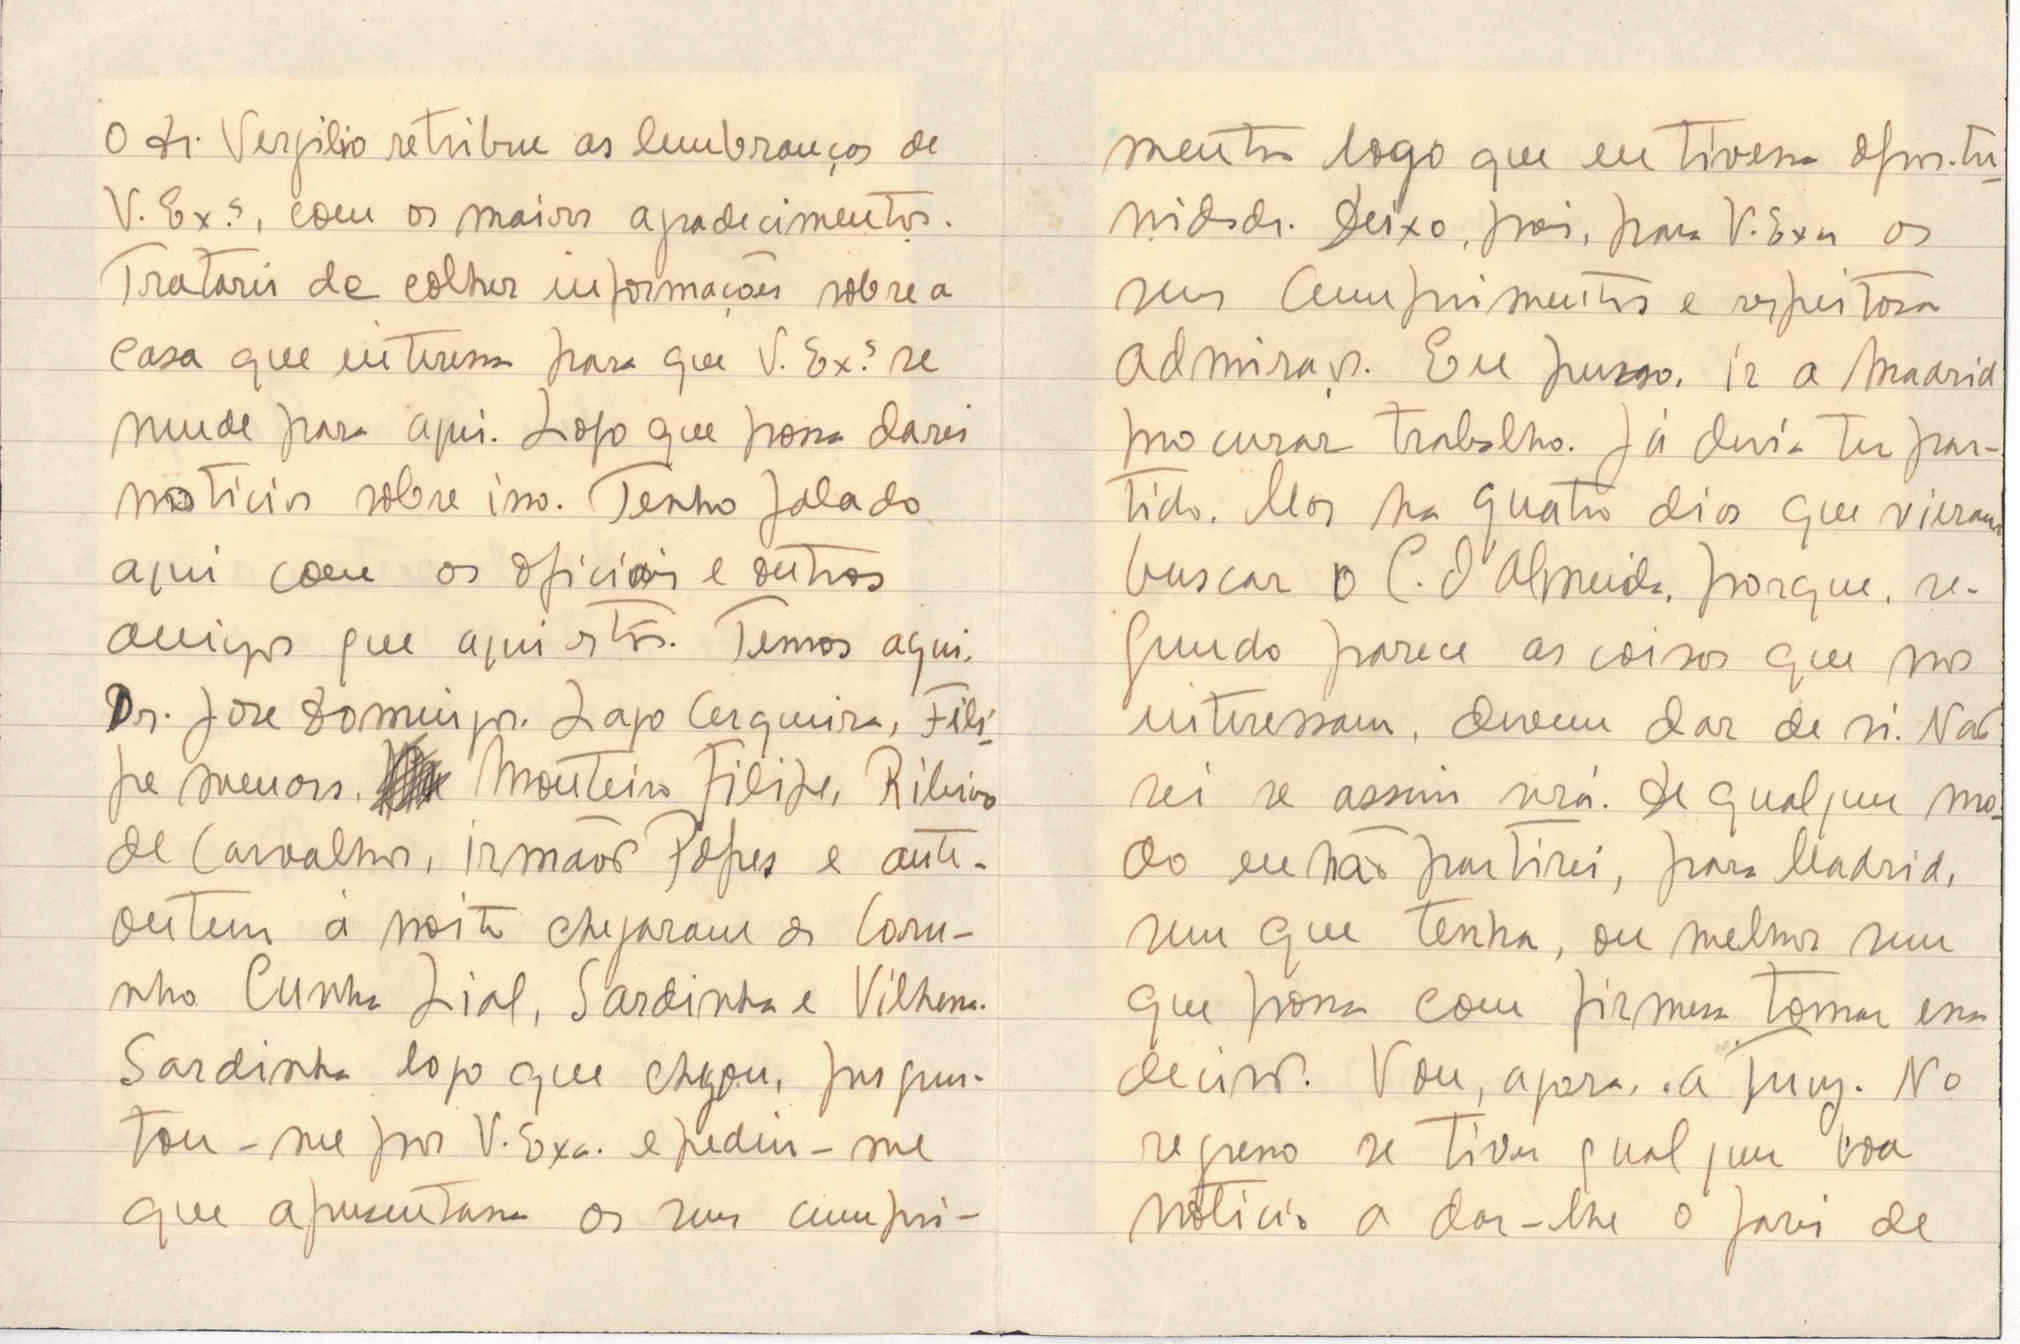 O dr. Vergilio retribue as lembranças de
V. Ex.ª, com os maiores agradecimentos.
Tratarei de colher informações sobre a
casa que interessa para que V. Ex.ª se
mude para aqui. Logo que possa darei
noticias sobre isso. Tenho falado
aqui com os oficiais e outros
amigos que aqui estão. Temos aqui,
Dr. José Domingos. Lago Cerqueira, Fili-
pe Mendes, Monteiro Filipe, Ribeiro
de Carvalho, irmãos Popes e ante-
ontem á noite chegaram da Coru-
nha Cunha Lial, Sardinha e Vilhena.
Sardinha logo que chegou, pergun-
tou-me por V. Exa. e pediu-me
que apresentasse os seus cumpri-
mentos logo que eu tivesse oportu-
nidade. Deixo, pois, para V. Exa os
seus cumprimentos e respeitosa
admiração. Eu penso, ir a Madrid
procurar trabalho. Já devia ter par-
tido. Mas ha quatro dias que vieram
buscar o C. d'Almeida, porque, se-
gundo parece as coisas que nos
interessam, devem dar de si. Não
sei se assim será. De qualquer mo-
do eu não partirei, para Madrid,
sem que tenha, ou melhor sem
que possa com firmesa tomar essa
decisão. Vou, agora, a Tuy. No
regresso se tiver qualquer boa
noticia a dar-lhe o farei de